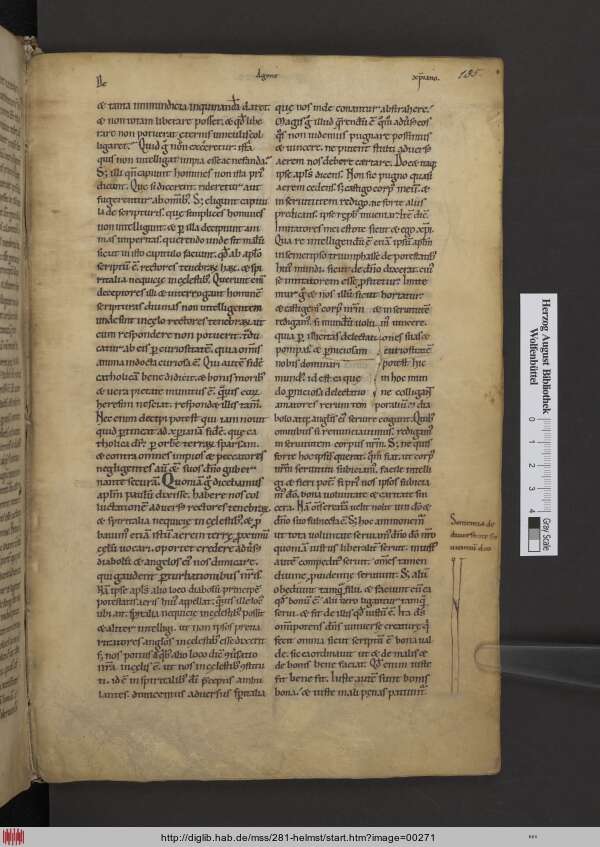 De Agone xpiano. 135.
& tanta inmundicia inquinandā daret.
& non totam liberare posset. & qd libe
rare non potuerat eternis uinculis col
ligaret. Quid g non execretur. ista
quis non intelligat impia esse ac nefanda.
S; illi qn capiunt homines non ista pri
dicunt. Que si dicerent. riderentur aut
fugerentur ab omib; S; eligunt capitu
la de scripturis. que simplices homines
non intelligunt. & p illa decipiunt ani
mas imperitas. querendo unde sit malū.
sicut in isto capitulo faciunt. qd ab aplo
scriptū ē. rectores tenebrarum harū. & spi
ritalia nequicie in celestib; Querunt enī
deceptores illi & interrogant hominē
scripturas diuinas non intelligentem
unde sint in celo rectores tenebrarum. ut
cum respondere non potuerit. tdu
catur ab eis p curiositatē. quia omis
anima indocta curiosa ē. Qui autē fidē
catholicā bene didicit. & bonis morib;
& uera pietate munitus ē. quis eorum
heresim nesciat. respondet illis tam.
Nec enim decipi potest qui iam nouit
quid ptineat ad xpianā fidē. que ca
tholica dr. p orbē terrarum sparsam.
& contra omnes impios & peccatores
negligentes aū & suos dno guber
nante secura. Quoniā g dicebamus
aplm paulū dixisse. habere nos col
luctationē aduersus rectores tenebrarū.
& spiritalia nequicie in celestib;. & p
bauim; etiā istū aerem terre pximū
celū uocari. oportet credere aduersus
diabolū & angelos ei; nos dimicare.
qui gaudent pturbationibus nris.
Nā ipse apls alio loco diabolū principē
potestatis aeris hui; appellat. quis ille loc;
ubi ait. spiritalia nequicie in celestib;. possit
& aliter intelligi. ut non ipsos preua
ricatores anglos in celestib; esse dixerit
s; nos potius. de qb; alio loco dic. cuersatio
nra in celis ē. ut nos in celestib; constitu
ti. id ē in spiritalib; dī pceptis ambu
lantes. dimicemus aduersus spiritalia
que nos inde conantur abstrahere.
Magis g illud qrendū ē. quom aduersus eos
quos non uidemus pugnare possimus
& uincere. ne putent stulti aduersus
aerem nos debere certare. Docet itaq;
ipse apls dicens. Non sic pugno quasi
aerem cedens. s; castigo corpus meū. &
in seruitutem redigo. ne forte aliis
predicans. ipse reprobus inueniar. Itē dic.
Imitatores mei estote sicut & ego xpi.
Qua re intelligendū ē etiā ipsū aplm
in semetipso triumphasse de potestatib;
hui; mundi. sicut de dno dixerat. cui;
se imitatorem esse pfitetur. Imite
mur g & nos illū. sicut hortatur
& castigem; corpus nrm. & in seruitutem
redigam;. si mundū volum; uincere.
quia p illicitas delectationes suas &
pompas. & perniciosam curiositatem
nobis dominari potest hic
mundus. id est ea que in hoc mun
do pniciosa delectatione colligant
amatores rerum temporalium. & dia
bolo atq; anglis ei; seruire cogunt. Quib;
omnibus si renunciauimus. redigam;
in seruitutem corpus nrm. S; ne quis
forte hoc ipsum querat. quomodo fiat. ut corpus
nrm seruituti subiciam;. facile intelli
gi & fieri potest. si prius nos ipsos subicia
mus dō. bona uoluntate & caritate sin
cera. Nā omis creatura uelit nolit uni dō &
dno suo subiecta ē. S; hoc ammonem;
ut tota uoluntate seruiam; dno dō nro.
quoniā iustus liberaliter seruit. iniustus
autē compeditus seruit. omes tamen
diuine prudentie seruiunt. S; alii
obediunt tamquam filii. & faciunt cum ea
qd bonū ē. alii uero ligantur tamquam
serui. & fit de illis qd iustū ē. Ita ds
omipotens dns uniuerse creature. qui
fecit omnia sicut scriptū ē bona ual
de. sic ea ordinauit ut & de malis &
de bonis bene faciat. Qd enim iuste
fit bene fit. Iuste autē sunt bonis
bona. & iuste mali penas patiunt.
Sentencia de
diuersitate ser
uientiū deo
Herzog August Bibliothek
Wolfenbüttel
0 1 2 3 4
Gray Scale
http://diglib.hab.de/mss/281-helmst/start.htm?image=00271